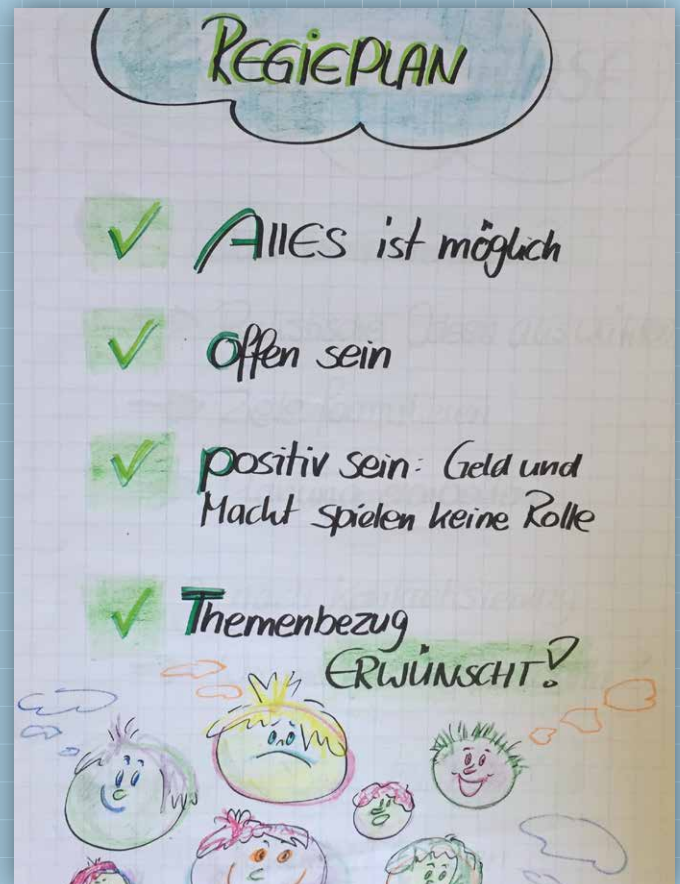 REGIEPLAN
AllES ist möglich
Offen sein
positiv sein: Geld und
Macht spielen keine Rolle
Themenbezug
ERWÜNSCHT!